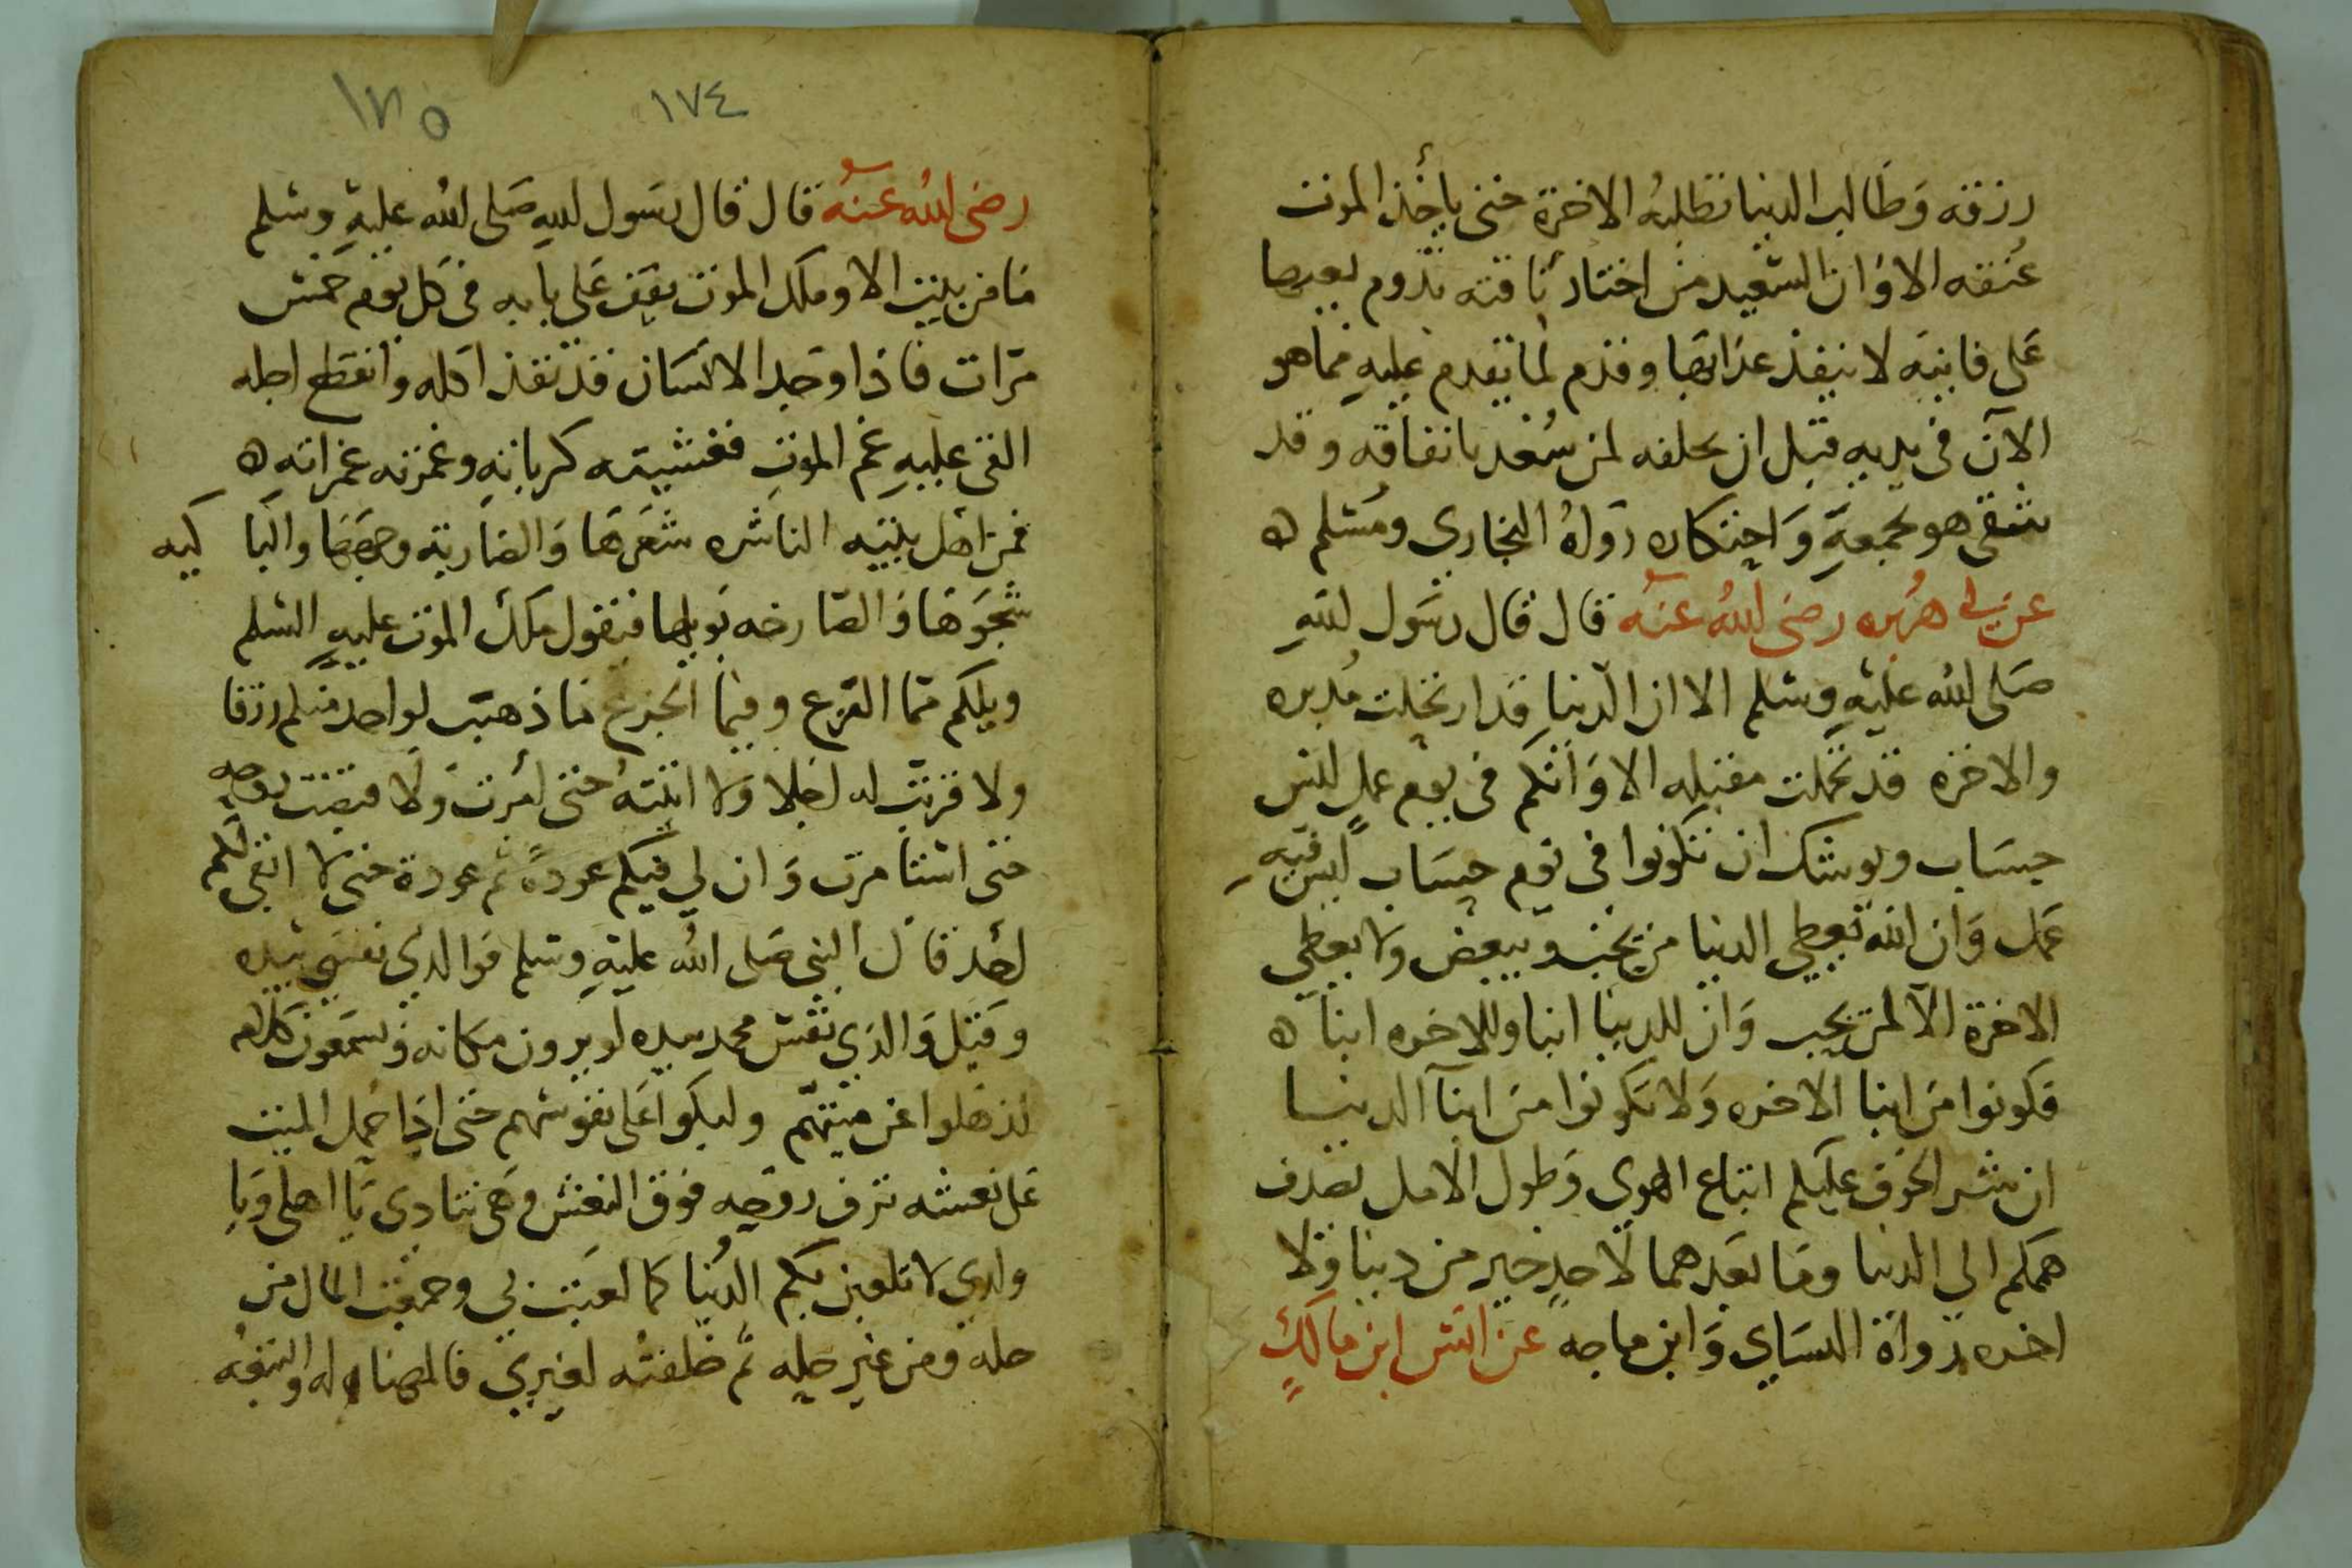 رزقه وَطَالب الدنيا تطلبهُ الاخرة حتى ياخُذ الموت
عُنقه الاوَان السّعيد من اختار باقته تدوم نعيمها
عَلى فانيَه لا ينفذ عذابها وقدم لما يقدم عليهِ مما هو
الآن فى يديه قبل ان يخلفه لمن سُعد بانفاقه وقد
شقى هو بجمعهِ وَاحتكاره رَوَاهُ البخاري ومُسلم ه
عن ابى هُريره رضى اللهُ عنه قال قال رسَول اللهِ
صَلى الله عليهِ وسلم الا ان الدنيا قد ارتحلت مُدبره
والاخره قد تحملت مقبله الا وَانكم فى يوم عملٍ ليس
حِسَاب ويوشك ان تكونوا فى يوم حِسَاب ليس فيهِ
عَمل وَان الله يعطى الدنيا من يُحب ويبغض ولا يعطى
الاخرة الا لمن يحب وَان للدنيا ابنا وللاخره ابنا ه
فكونوا من ابنا الاخره وَلا تكونوا من ابنآ الدنيا
ان شر الخوف عليكم اتباع الهوى وَطول الامل يصرف
هممكم الى الدنيا ومَا بعدهما لاحدٍ خير من دنيا وَلا
اخره رَواهُ النسَاي وَابن ماجه عن انس ابن مالكٍ
١٧٤
١٧٥
رضى الله عنه قال قال رسَول اللهِ صَلى الله عليهِ وسلم
مَا من بيت الا وملك الموت يقف عَلى بابه فى كل يوم خمس
مرّات فاذا وجد الانسَان قد نفذ اكله وانقطع اجله
القى عليهِ غم الموت فغشيته كرباتهِ وغمزته غمراتهِ ه
فمن اهل بيته الناشره شعَرهَا وَالضاربة وجههَا والبَا كيه
شجوَهَا وَالصَارخه بويلها فيقول ملك الموت عليهِ السلم
ويلكم ممّا الفزع وفيمَا الجزع مَا ذهبت لواحد منكم رزقا
ولا قربت له اجلا وَلا اتيتهُ حتى امُرت وَلا قبضت روحه
حتى استامرت وَان لي فيكم عودةً ثم عودة حتى لا ابقى منكم
احد قال النبى صَلى الله عليهِ وسلم فوالذى نفسى بيده
وقيل وَالذى نفس محمد بيده لو يرون مكانه وَيسمعون كلامه
لذهلوا عن ميتهّم ولبكوا عَلى نفوسهم حتى اذا حُمل الميت
عَلى نعشه ترف روحه فوق النعش وهَى تنادى يَا اهلى وَيا
ولدي لا تلعبن بكم الدُنيا كما لعبت بى وجمعت المال من
حله ومن غير حِله ثم خلفته لغيرى فالمهناه له والتبعَه